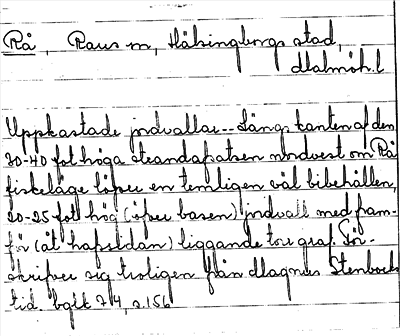 Rå, Raus sn, Hälsingborgs stad,
Malmöh. l
Uppkastade jordvallar -- Längs kanten af den
30-40 fot höga strandafsatsen nordvest om Rå
fiskeläge löper en temligen väl bibehållen,
20-25 fot hög (öfver basen) jordvall med fram-
för (åt hafssidan) liggande torr graf. För-
skrifver sig troligen från Magnus Stenbocks
tid. bglk 74, s. 156